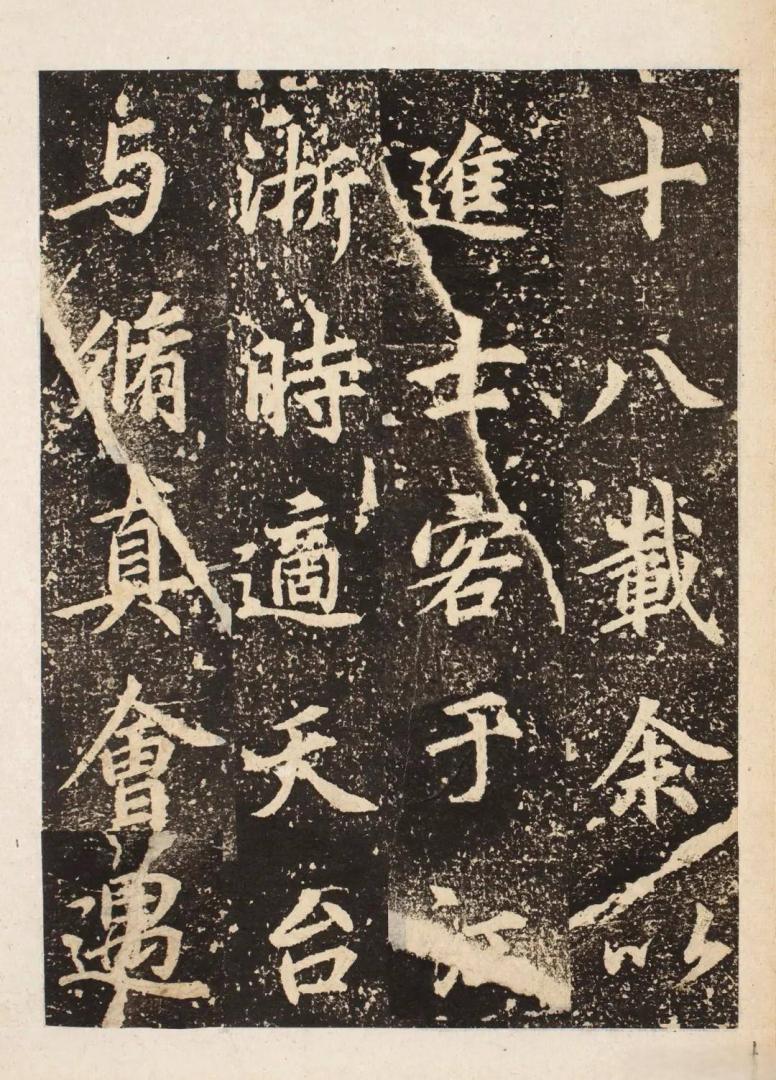 十八載余以
進士客于江
淛時適天台
与脩真會遇